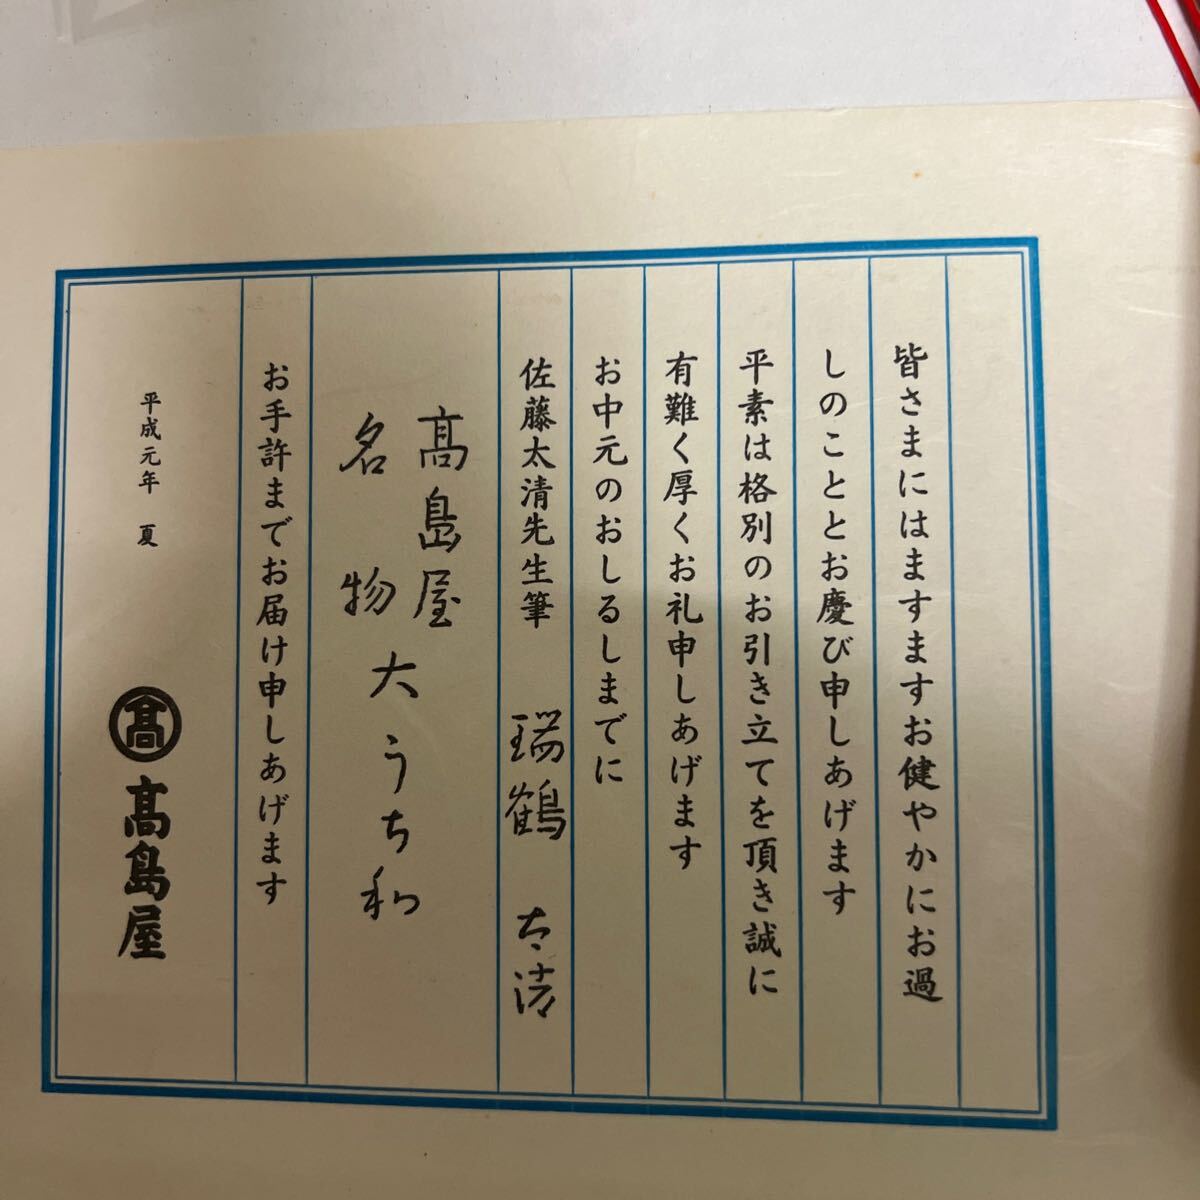 皆さまにはますますお健やかにお過
しのこととお慶び申しあげます
平素は格別のお引き立てを頂き誠に
有難く厚くお礼申しあげます
お中元のおしるしまでに
佐藤太清先生筆 瑞鶴 太清
髙島屋
名物大うち和
お手許までお届け申しあげます
平成元年 夏
髙 髙島屋